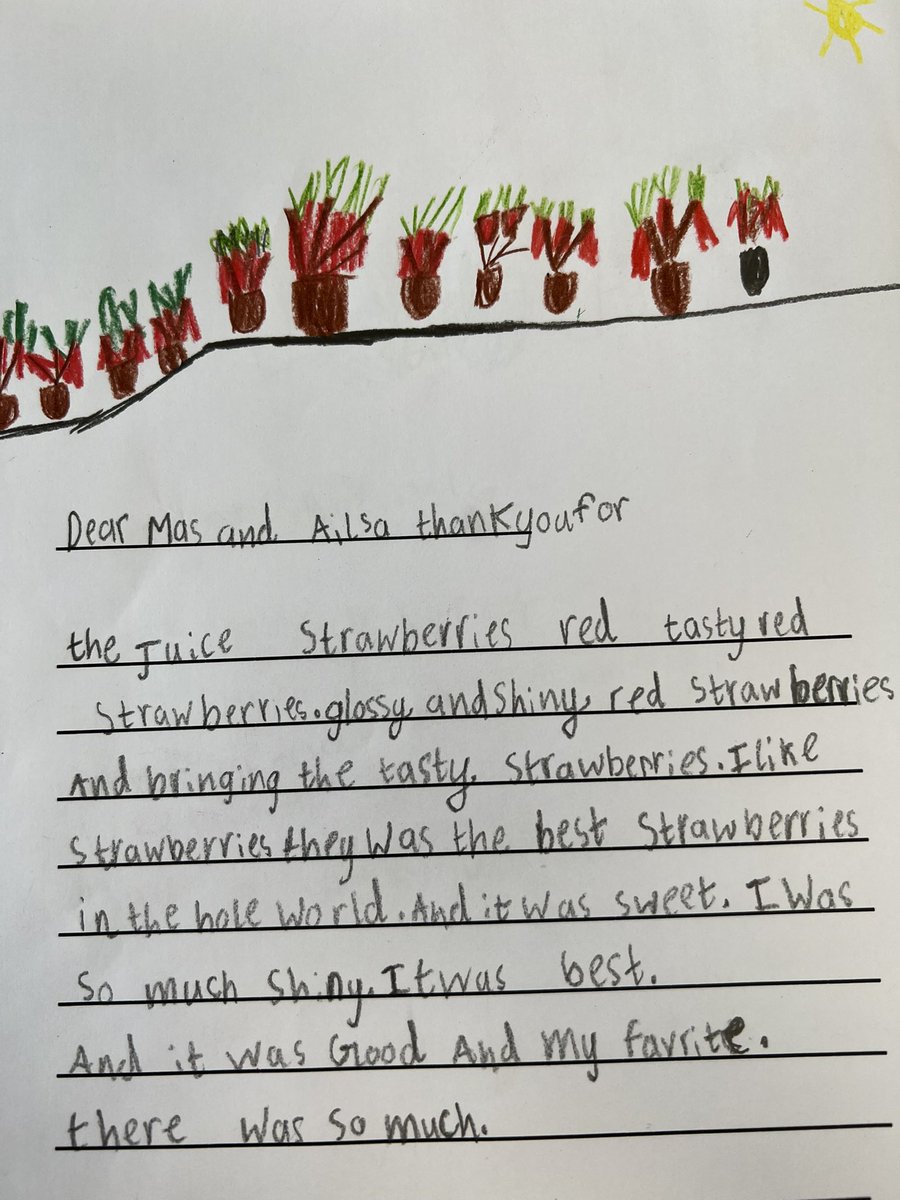 Dear Mas and Ailsa thankyoufor
the Juice Strawberries red tasty red
Strawberries.glossy andshiny red strawberries
And bringing the tasty strawberries.I like
strawberries they was the best strawberries
in the hole world.And it was sweet. I was
so much shiny.Itwas best.
And it was Good And my favrite.
there was so much.